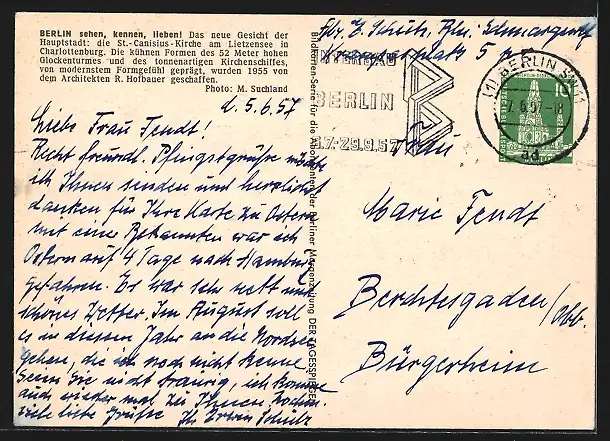 BERLIN sehen, kennen, lieben! Das neue Gesicht der
Hauptstadt: die St.-Canisius-Kirche am Lietzensee in
Charlottenburg. Die kühnen Formen des 52 Meter hohen
Glockenturmes und des tonnenartigen Kirchenschiffes,
von modernstem Formgefühl geprägt, wurden 1955 von
dem Architekten R. Hofbauer geschaffen.
Photo: M. Suchland
d. 5.6.57
Liebe Frau Fendt!
Recht freundl. Pfingstgrüße möchte
ich Ihnen senden und herzlichst
danken für Ihre Karte zu Ostern
mit eine Bekannten war ich
Ostern auf 4 Tage nach Hamburg
gefahren. Es war sehr nett und
schönes Wetter. Im August soll
es in diesem Jahr an die Nordsee
gehen, die ich noch nicht kenne.
Seien Sie nicht traurig, ich komme
auch wieder mal zu Ihnen.
viele liebe Grüße Ihr Erwin Schulz
Bildkarten-Serie für die Abonnenten der Berliner Morgenzeitung DER TAGESSPIEGEL
Abs. E. Schulz, Bln. Schmargendorf
platz 5
INTERBAU
BERLIN
6.7-29.9.57
(1) BERLIN SW 11
7.6.57-18
ad
10
Frau
Marie Fendt
Berchtesgaden/Obb.
Bürgerheim